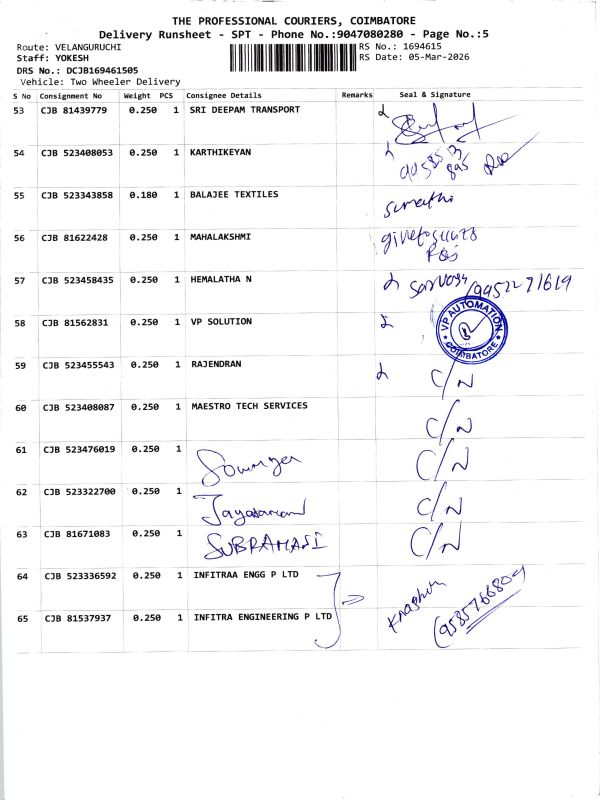 THE PROFESSIONAL COURIERS, COIMBATORE
Delivery Runsheet - SPT - Phone No.:9047080280 - Page No.:5
Route: VELANGURUCHI
RS No.: 1694615
Staff: YOKESH
RS Date: 05-Mar-2026
DRS No.: DCJB169461505
Vehicle: Two Wheeler Delivery
S No Consignment No Weight PCS Consignee Details Remarks Seal & Signature
53 CJB 81439779 0.250 1 SRI DEEPAM TRANSPORT
54 CJB 523408053 0.250 1 KARTHIKEYAN
895
55 CJB 523343858 0.180 1 BALAJEE TEXTILES
Sumathi
56 CJB 81622428 0.250 1 MAHALAKSHMI
57 CJB 523458435 0.250 1 HEMALATHA N
58 CJB 81562831 0.250 1 VP SOLUTION
VP AUTOMATION
COIMBATORE
59 CJB 523455543 0.250 1 RAJENDRAN C/N
60 CJB 523408087 0.250 1 MAESTRO TECH SERVICES C/N
61 CJB 523476019 0.250 1 Sowmya C/N
62 CJB 523322700 0.250 1 C/N
63 CJB 81671083 0.250 1 SUBRAMASI C/N
64 CJB 523336592 0.250 1 INFITRAA ENGG P LTD
65 CJB 81537937 0.250 1 INFITRA ENGINEERING P LTD
9585766809